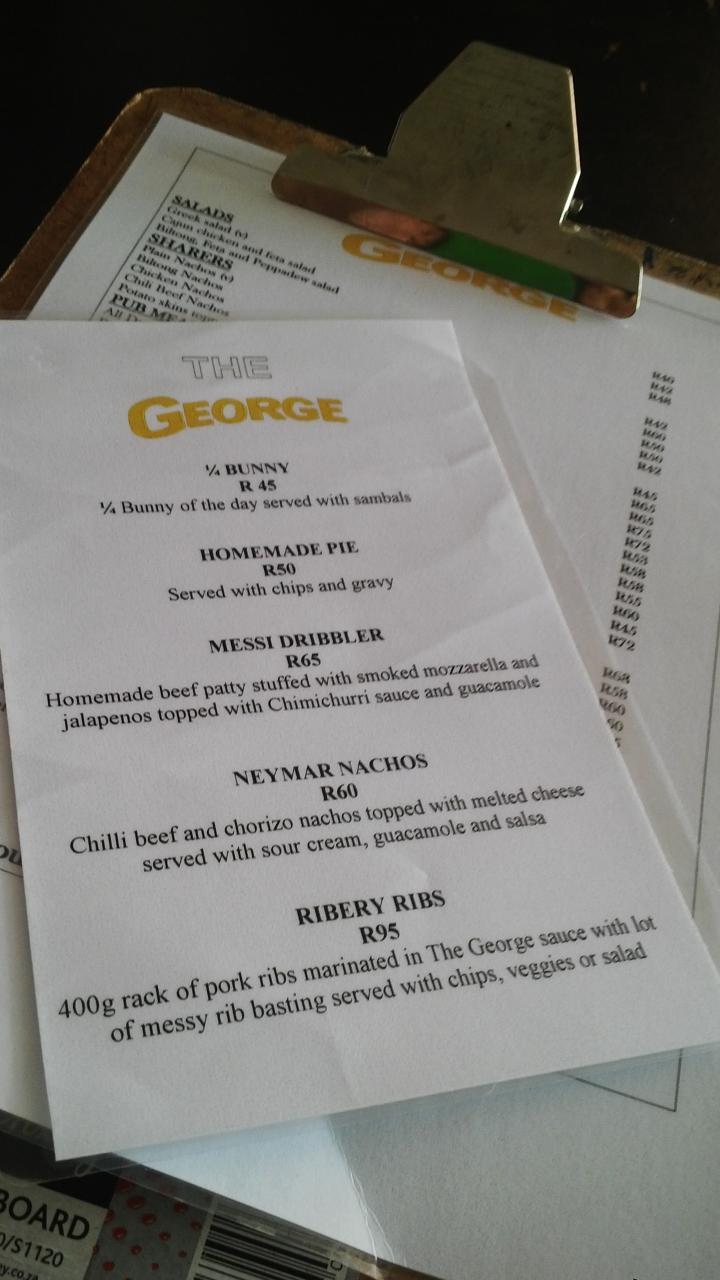 SALADS
Greek salad (v)
Cajun chicken and feta salad
Biltong, Feta and Peppadew salad
SHARERS
Plain Nachos (v)
Biltong Nachos
Chicken Nachos
Chili Beef Nachos
Potato skins
PUB
GEORGE
R40
R42
R48
R42
R60
R50
R50
R42
R45
R65
R65
R75
R72
R53
R58
R58
R55
R60
R45
R72
R68
R58
R60
THE
GEORGE
¼ BUNNY
R 45
¼ Bunny of the day served with sambals
HOMEMADE PIE
R50
Served with chips and gravy
MESSI DRIBBLER
R65
Homemade beef patty stuffed with smoked mozzarella and
jalapenos topped with Chimichurri sauce and guacamole
NEYMAR NACHOS
R60
Chilli beef and chorizo nachos topped with melted cheese
served with sour cream, guacamole and salsa
RIBERY RIBS
R95
400g rack of pork ribs marinated in The George sauce with lot
of messy rib basting served with chips, veggies or salad
BOARD
/S1120